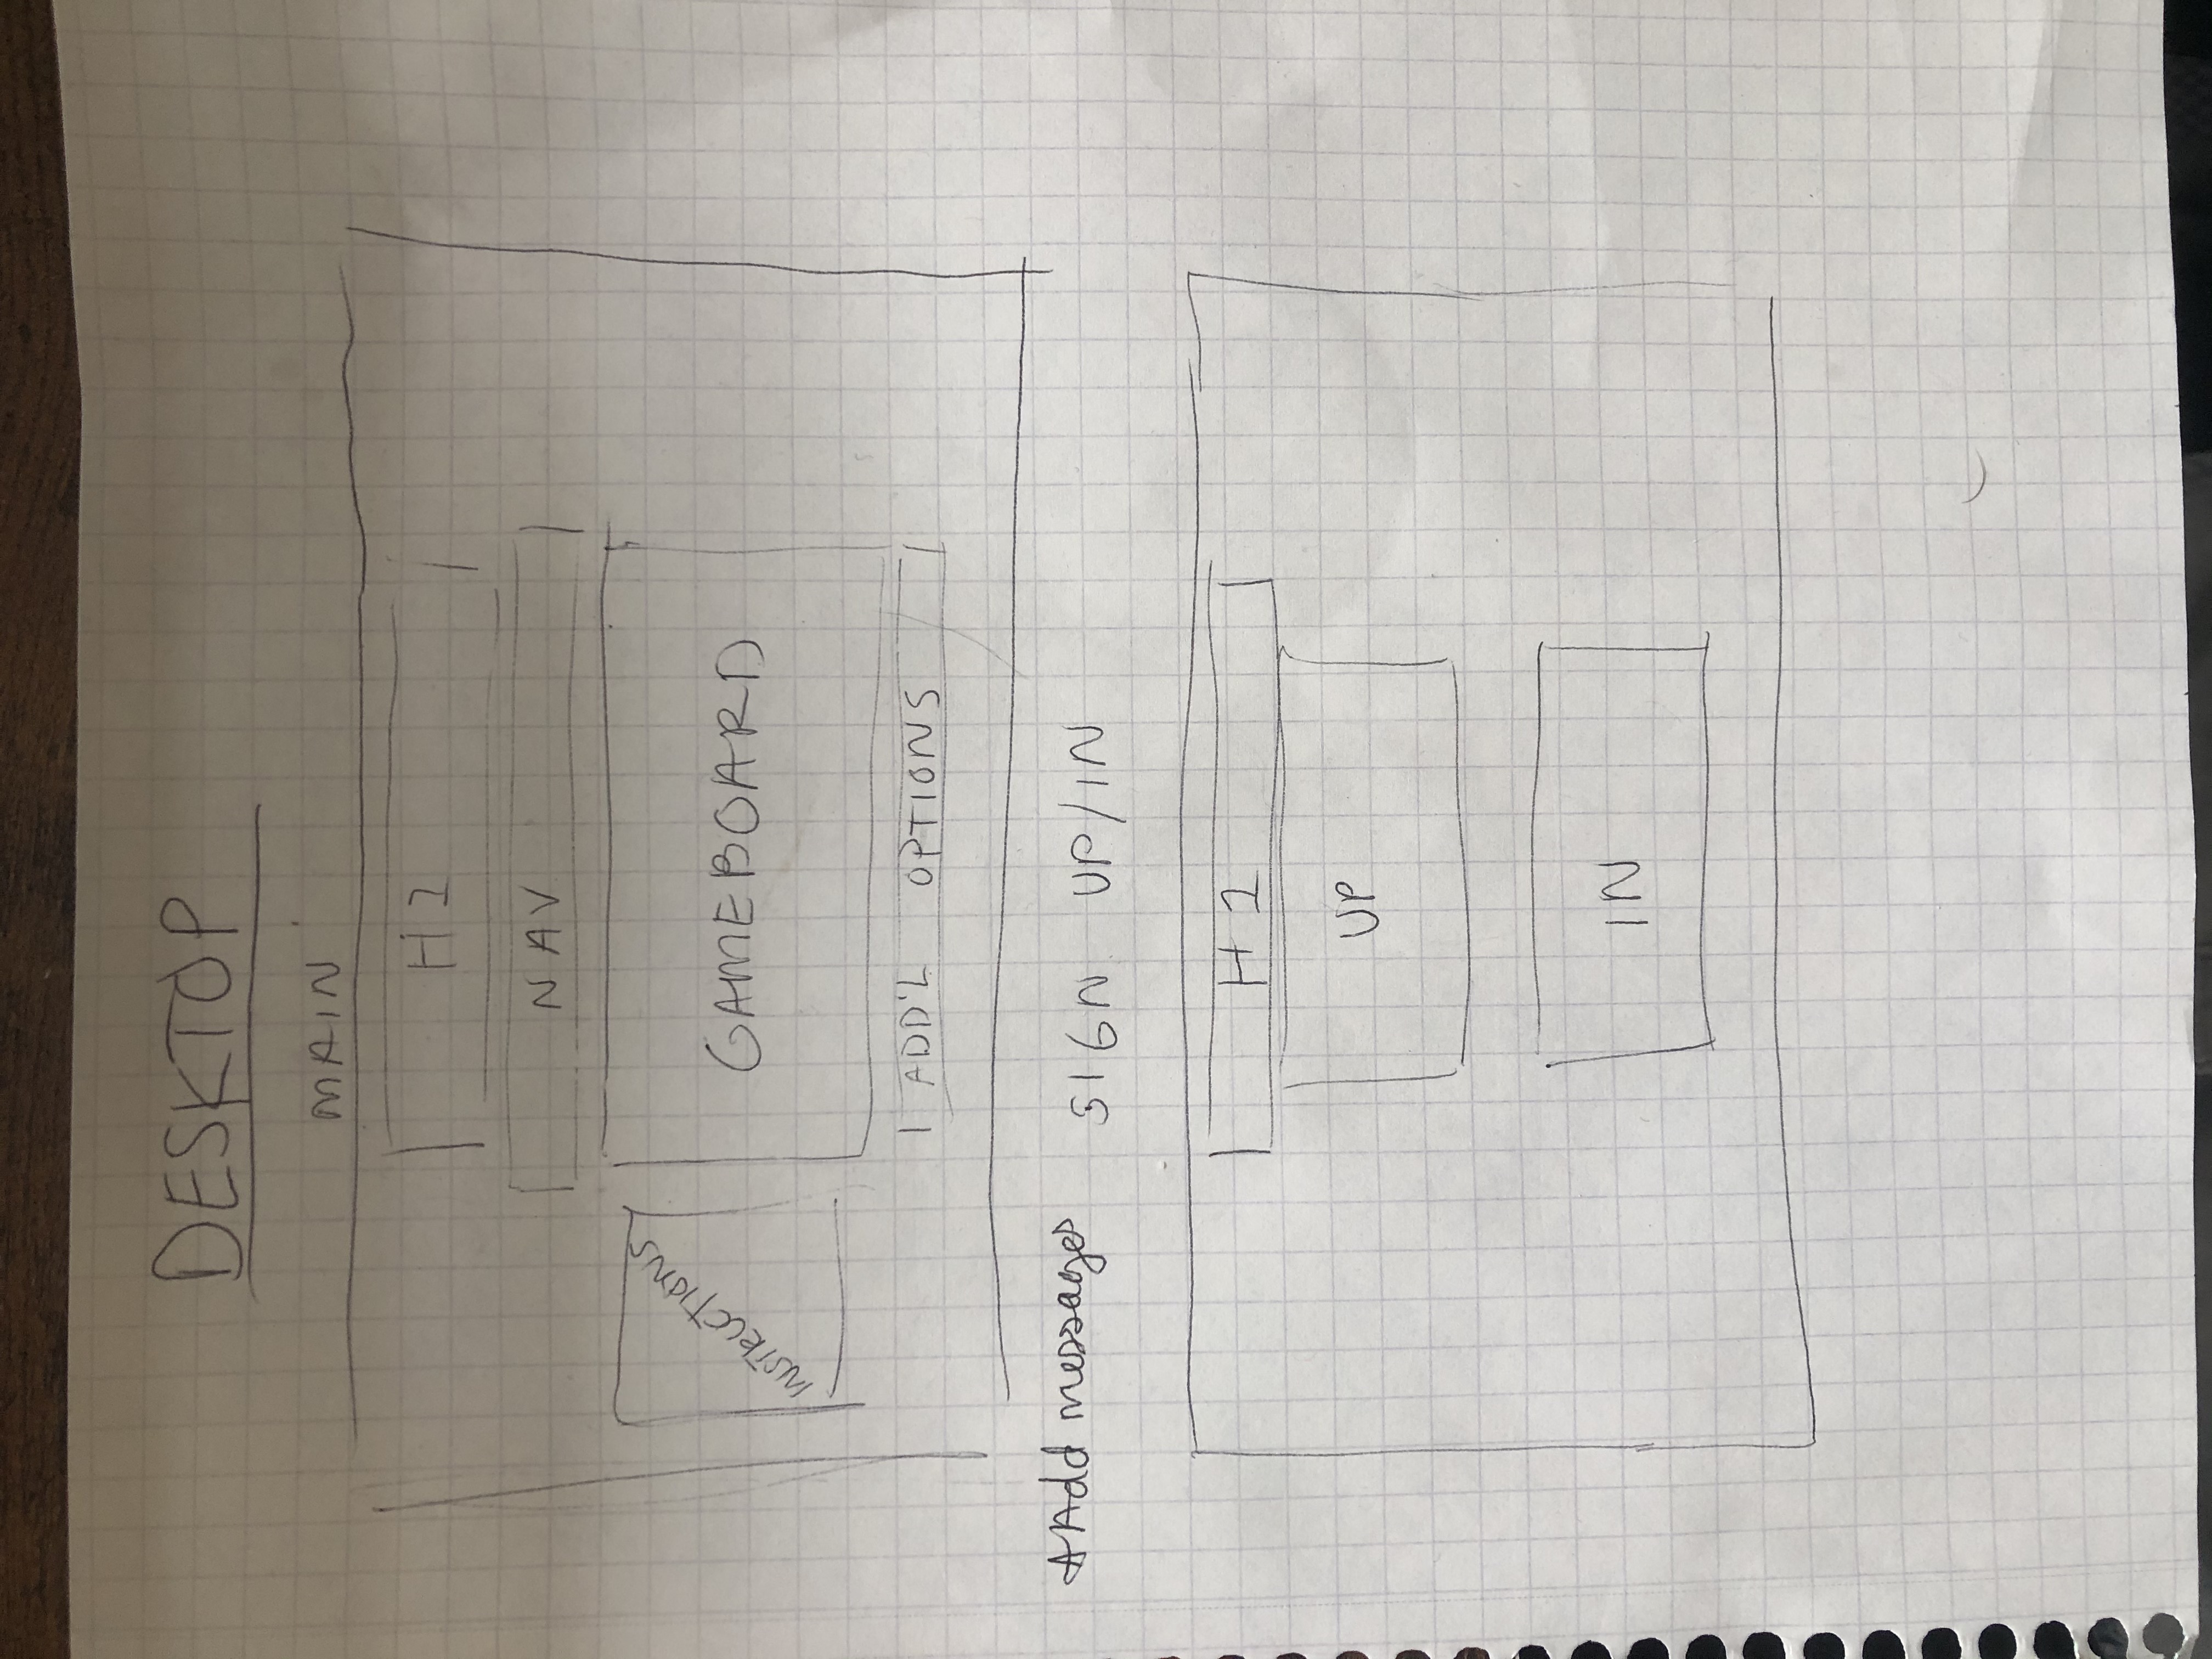 DESKTOP
MAIN
H1
NAV
INSTRUCTIONS
GAMEBOARD
ADD'L OPTIONS
*Add messages
SIGN UP/IN
H1
UP
IN